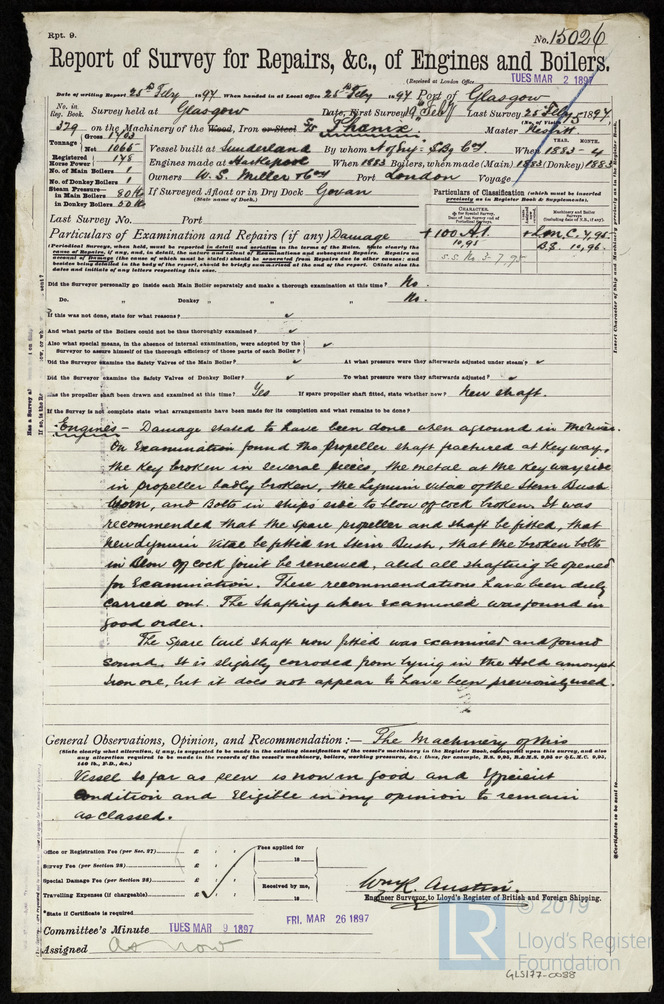 Rpt. 9.
No. 15026
Report of Survey for Repairs, &c., of Engines and Boilers.
(Received at London Office TUES MAR 2 1897
Date of writing Report 25th Feby 1897 When handed in at Local Office 25th Feby 1897 Port of Glasgow
No. in Reg. Book. Survey held at Glasgow Date, First Survey 19th Feby Last Survey 25 Feby 1897
(No. of Visits 5)
329 on the Machinery of the Wood, Iron or Steel S/S Master Nesbitt
Tonnage Gross 1703
Net 1065
Vessel built at Sunderland By whom When 1883-4
YEAR. MONTH.
Registered Horse Power 178
Engines made at Hartlepool When 1883 Boilers, when made (Main) 1883 (Donkey) 1883
No. of Main Boilers 1
No. of Donkey Boilers 1
Owners W. S. Miller & Coy Port London Voyage
Steam Pressure— in Main Boilers 80 lb
in Donkey Boilers 50 lb
If Surveyed Afloat or in Dry Dock Govan
(State name of Dock.)
Particulars of Classification (which must be inserted precisely as in Register Book & Supplements).
Last Survey No. Port
CHARACTER.
Machinery and Boiler Surveys
+100A1.
10,95
S.S. No. 3-7.95
+Lon. C. 7,95
B.S. 10,96.
Particulars of Examination and Repairs (if any) Damage
(Periodical Surveys, when held, must be reported in detail and seriatim in the terms of the Rules. State clearly the cause of Repairs, if any, and, in detail, the nature and extent of Examinations and subsequent Repairs. Repairs on account of Damage (the cause of which must be stated) should be separated from Repairs due to other causes; and besides being detailed in the body of the report, should be briefly summarised at the end of the report. State also the dates and initials of any letters respecting this case.
Did the Surveyor personally go inside each Main Boiler separately and make a thorough examination at this time? No.
Do. " Donkey " " " " No.
If this was not done, state for what reasons?
And what parts of the Boilers could not be thus thoroughly examined?
Also what special means, in the absence of internal examination, were adopted by the Surveyor to assure himself of the thorough efficiency of those parts of each Boiler?
Did the Surveyor examine the Safety Valves of the Main Boiler? At what pressure were they afterwards adjusted under steam?
Did the Surveyor examine the Safety Valves of Donkey Boiler? To what pressure were they afterwards adjusted?
Has the propeller shaft been drawn and examined at this time? Yes If spare propeller shaft fitted, state whether new? New shaft.
If the Survey is not complete state what arrangements have been made for its completion and what remains to be done?
Engines – Damage stated to have been done when aground in
On Examination found the propeller shaft fractured at Keyway,
the Key broken in several pieces, the metal at the Keyway side
in propeller badly broken, the Lignum Vitae of the Stern Bush
worn, and Bolts in ships side to blow off cock broken. It was
recommended that the spare propeller and shaft be fitted, that
new Lignum Vitae be fitted in Stern Bush, that the broken bolts
in Blow off cock joint be renewed, and all shafting be opened
for Examination. These recommendations have been duly
carried out. The shafting when examined was found in
good order.
The Spare tail shaft now fitted was examined and found
sound. It is slightly corroded from lying in the Hold amongst
Iron ore, but it does not appear to have been previously used.
General Observations, Opinion, and Recommendation :— The Machinery of this
(State clearly what alteration, if any, is suggested to be made in the existing classification of the vessel's machinery in the Register Book, subsequent upon this survey, and also any alteration required to be made in the records of the vessel's machinery, boilers, working pressures, &c.: thus, for example, B.S. 9,95, B.&M.S. 9,95 or &L.M.C. 9,95, 140 lb., F.D., &c.)
Vessel so far as seen is now in good and Efficient
condition and Eligible in my opinion to remain
as classed.
Office or Registration Fee (per Sec. 27) £ : :
Survey Fee (per Section 28) £ : :
Special Damage Fee (per Section 28) £ : :
Travelling Expenses (if chargeable) £ : :
Fees applied for
18
Received by me,
18
Wm R. Austin.
Engineer Surveyor, to Lloyd's Register of British and Foreign Shipping.
*State if Certificate is required
Committee's Minute TUES MAR 9 1897 FRI. MAR 26 1897
Assigned as now
LR
© 2019
Lloyd's Register
Foundation
GLS177-0038